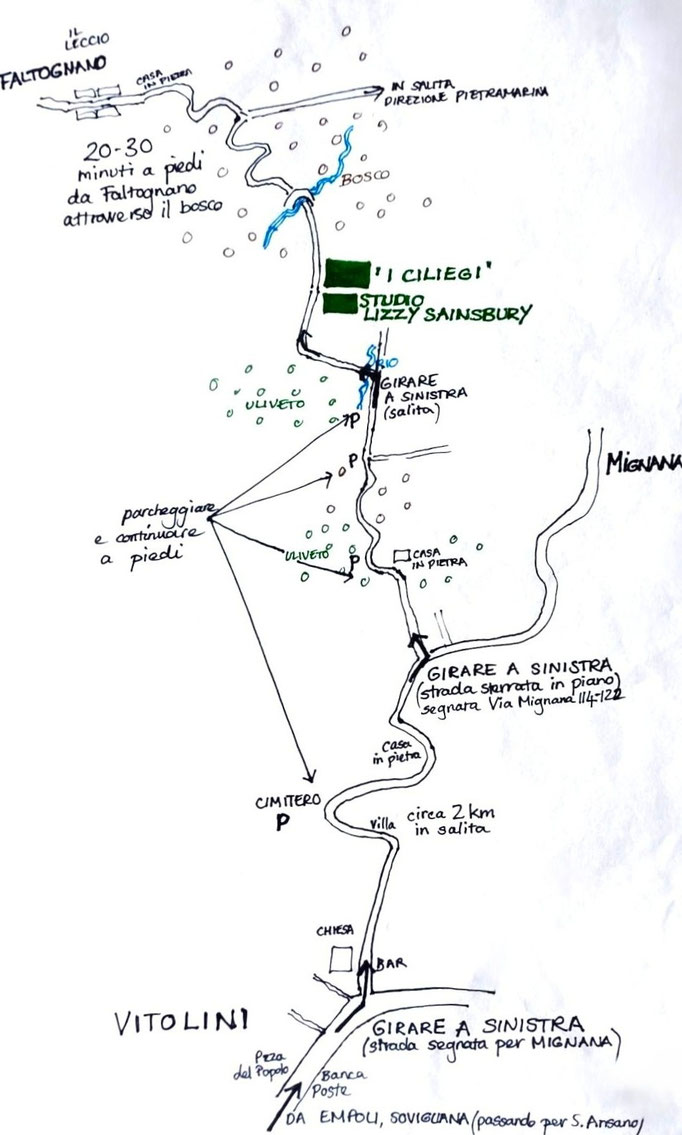 IL
LECCIO
FALTOGNANO
CASA
IN PIETRA
IN SALITA
DIREZIONE PIETRAMARINA
20-30
minuti a piedi
da Faltognano
attraverso il bosco
BOSCO
"I CILIEGI"
STUDIO
LIZZY SAINSBURY
RIO
GIRARE
A SINISTRA
(salita)
ULIVETO
P
P
MIGNANA
parcheggiare
e continuare
a piedi
ULIVETO
P
CASA
IN PIETRA
GIRARE A SINISTRA
(strada sterrata in piano)
segnata Via Mignana 114-122
Casa
in pietra
CIMITERO
P
Villa
circa 2 km
in salita
CHIESA
BAR
VITOLINI
GIRARE A SINISTRA
(strada segnata per MIGNANA)
P.zza
del Popolo
Banca
Poste
DA EMPOLI, SOVIGLIANA (passando per S. Ansano)